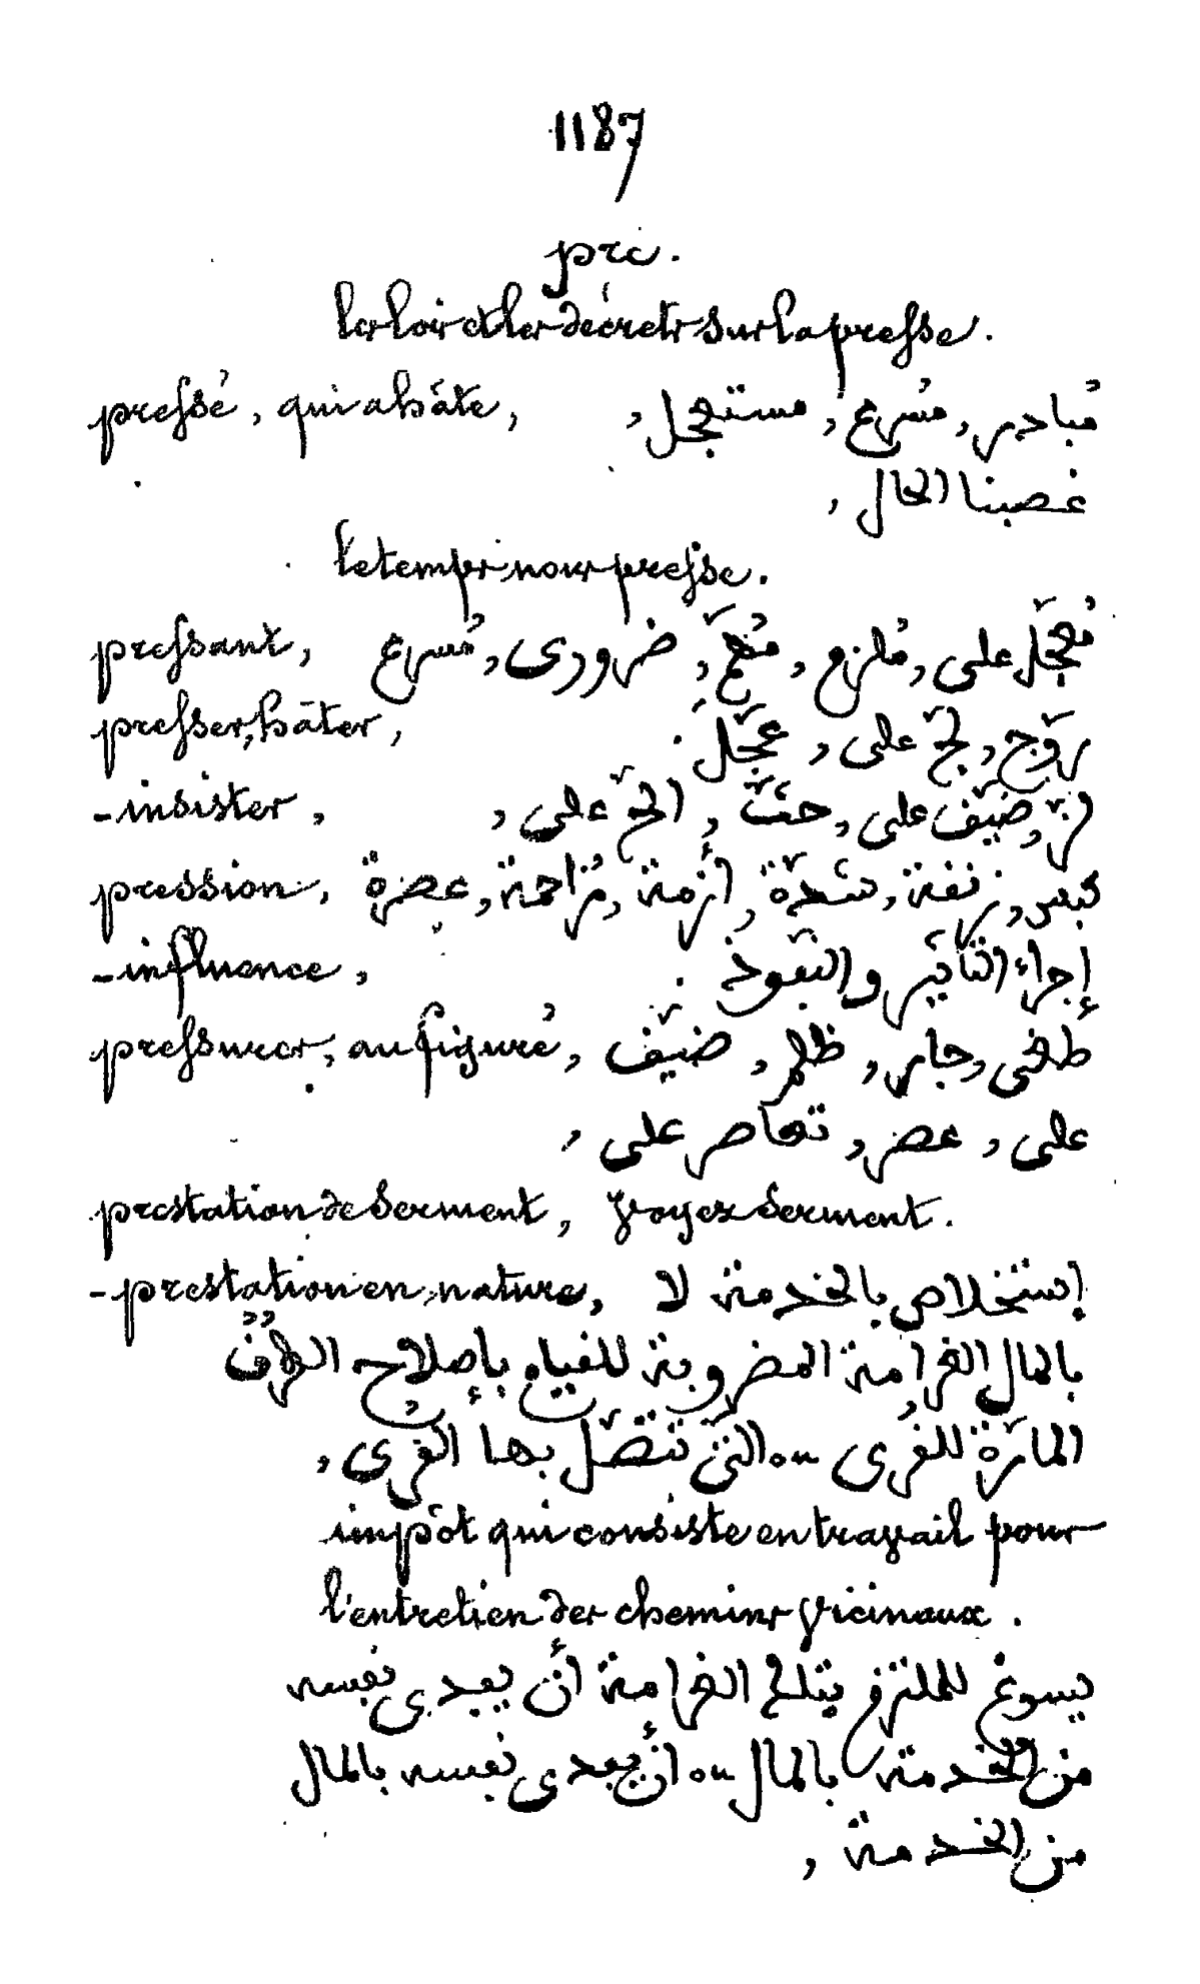 1187
pré.
les lois et les décrets sur la presse.
pressé, qui a hâte, مُبادر, مُسرع, مستعجل,
غصبنا الحال,
le temps nous presse.
pressant, مُعجّل على, مُلزم, مُهمّ, ضرورى, مُسرع
presser, hâter, روّج, لحّ على, عجّل.
- insister, لزّ, ضيّق على, حثّ, الحّ على,
pression, كبس, زنفة, شدّة, أزمة, مُزاحمة, عصرة
- influence, إجراء التأثير والنفوذ.
pressurer, au figuré, طغى, جار, ظلم, ضيّق
على, عصر, تعاصر على,
prestation de serment, Voyez serment.
- prestation en nature, إستخلاص بالخدمة لا
بالمال الغرامة المضروبة للقيام بإصلاح الطُرُق
المارّة للقُرى ou التى تتّصل بها القُرى,
impôt qui consiste en travail pour
l'entretien des chemins vicinaux.
يسوغ للملتزم بتلك الغرامة أن يفدى نفسه
من الخدمة بالمال ou أن يفدى نفسه بالمال
من الخدمة,